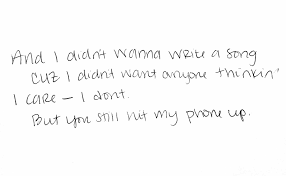 And I didn't wanna write a song
cuz I didn't want anyone thinkin'
I care – I dont.
But you still hit my phone up.